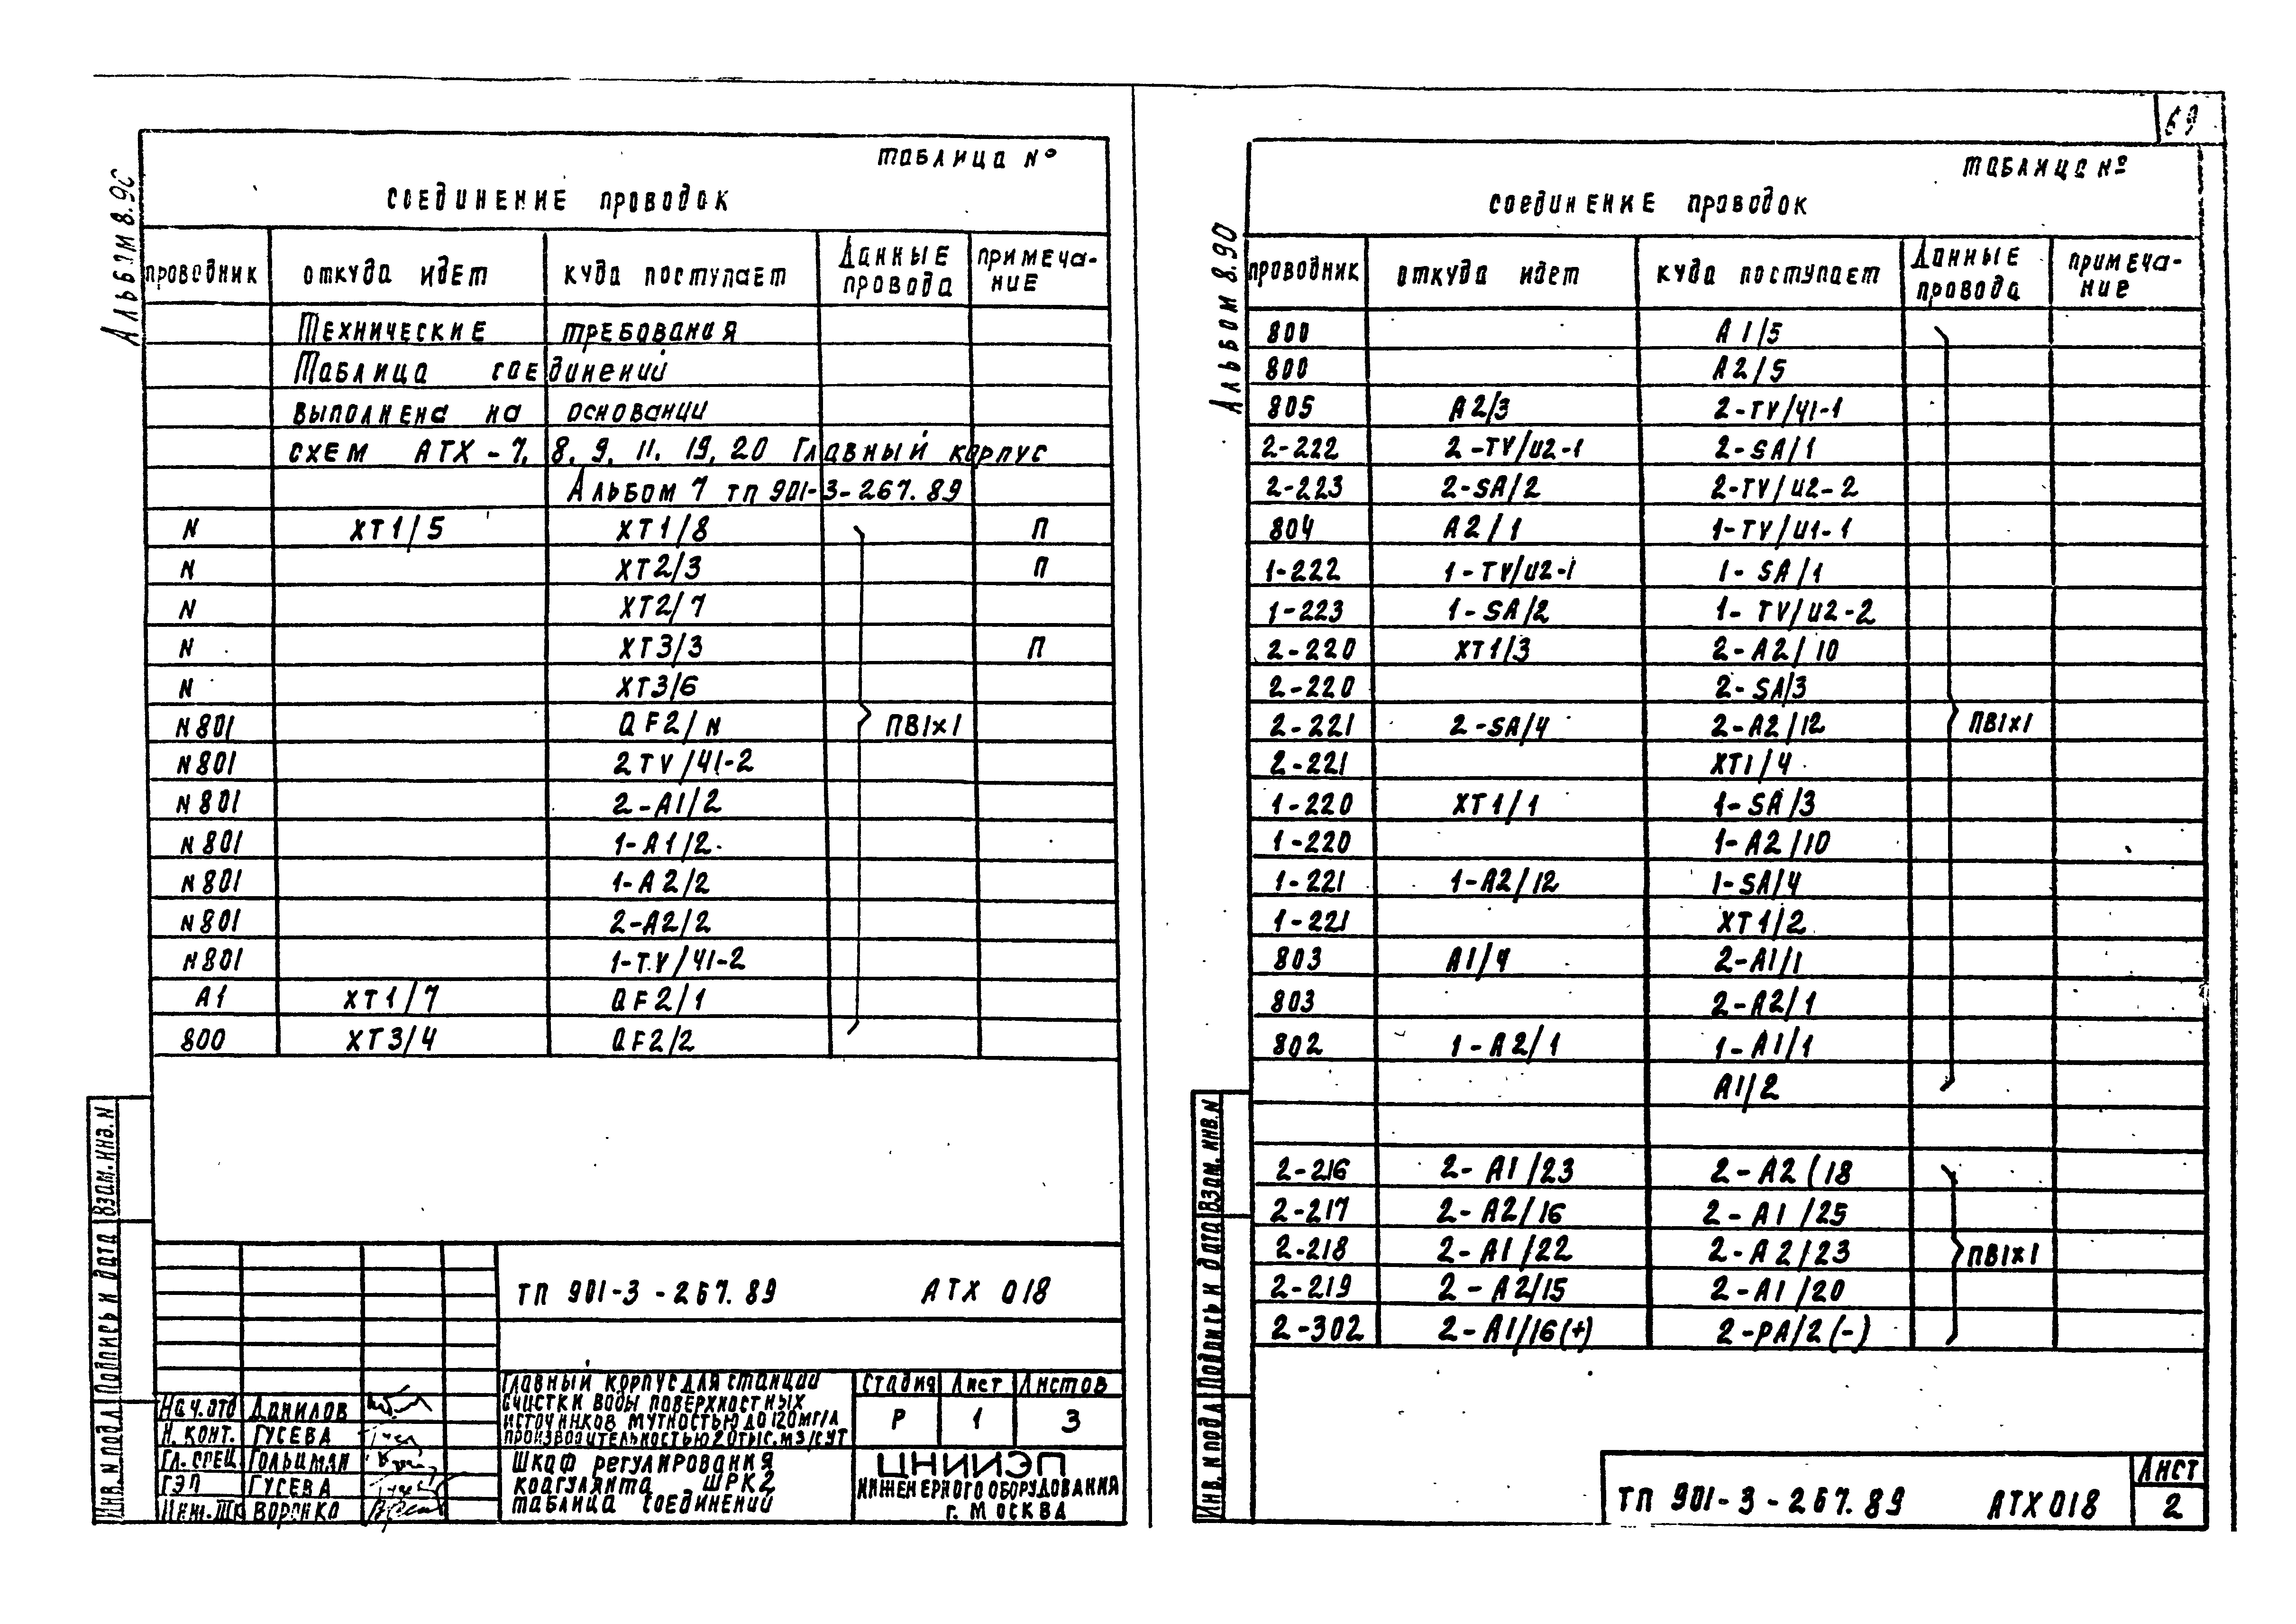 69
Альбом 8.90
таблица №
соединение проводок
проводник | откуда идет | куда поступает | Данные провода | примечание
Технические требования
Таблица соединений
выполнена на основании
схем АТХ-7, 8, 9, 11, 19, 20 Главный корпус
Альбом 7 тп 901-3-267.89
N | XT1/5 | XT1/8 | | П
N | | XT2/3 | | П
N | | XT2/7
N | | XT3/3 | | П
N | | XT3/6
N801 | | QF2/N | ПВ1х1
N801 | | 2TV/U1-2
N801 | | 2-A1/2
N801 | | 1-A1/2
N801 | | 1-A2/2
N801 | | 2-A2/2
N801 | | 1-TV/U1-2
A1 | XT1/7 | QF2/1
800 | XT3/4 | QF2/2
Взам. инв. N
Подпись и дата
Инв. N подл
ТП 901-3-267.89 АТХ 018
Нач. отд Данилов
Н. конт. Гусева
Гл. спец Гольцман
ГЭП Гусева
Воронко
Главный корпус для станции
очистки воды поверхностных
источников мутностью до 120мг/л
производительностью 20тыс. м3/сут
Шкаф регулирования
коагулянта ШРК2
таблица соединений
Стадия | Лист | Листов
Р | 1 | 3
ЦНИИЭП
инженерного оборудования
г. Москва
Альбом 8.90
таблица №
соединение проводок
проводник | откуда идет | куда поступает | Данные провода | примечание
800 | | A1/5
800 | | A2/5
805 | A2/3 | 2-TV/U1-1
2-222 | 2-TV/U2-1 | 2-SA/1
2-223 | 2-SA/2 | 2-TV/U2-2
804 | A2/1 | 1-TV/U1-1
1-222 | 1-TV/U2-1 | 1-SA/1
1-223 | 1-SA/2 | 1-TV/U2-2
2-220 | XT1/3 | 2-A2/10
2-220 | | 2-SA/3
2-221 | 2-SA/4 | 2-A2/12 | ПВ1х1
2-221 | | XT1/4
1-220 | XT1/1 | 1-SA/3
1-220 | | 1-A2/10
1-221 | 1-A2/12 | 1-SA/4
1-221 | | XT1/2
803 | A1/4 | 2-A1/1
803 | | 2-A2/1
802 | 1-A2/1 | 1-A1/1
A1/2
2-216 | 2-A1/23 | 2-A2/18
2-217 | 2-A2/16 | 2-A1/25
2-218 | 2-A1/22 | 2-A2/23 | ПВ1х1
2-219 | 2-A2/15 | 2-A1/20
2-302 | 2-A1/16(+) | 2-PA/2(-)
Взам. инв. N
Подпись и дата
Инв. N подл
ТП 901-3-267.89 АТХ 018
Лист
2